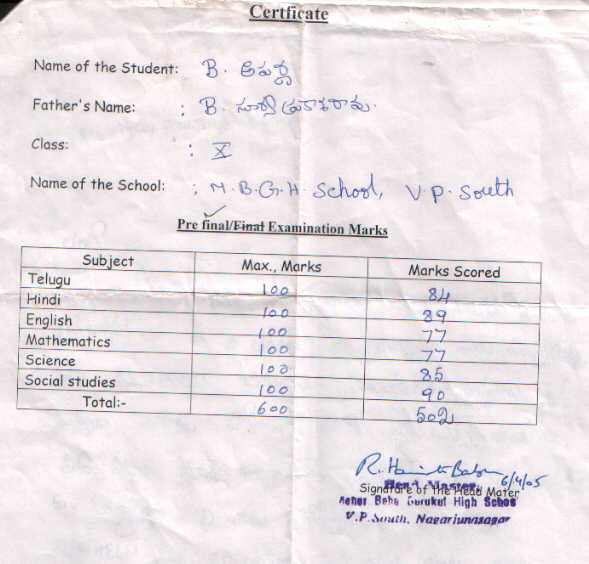 Certficate
Name of the Student: B. అపర్ణ
Father's Name: : B. సూర్య ప్రకాశరావు.
Class: : X
Name of the School: : M.B.G.H. School, V.P. South
Pre final/Final Examination Marks
Subject Max., Marks Marks Scored
Telugu 100 84
Hindi 100 89
English 100 77
Mathematics 100 77
Science 100 85
Social studies 100 90
Total:- 600 502
6/4/05
Head Master
Signature of the Head Mater
Meher Baba Gurukul High School
V.P.South, Nagarjunasagar